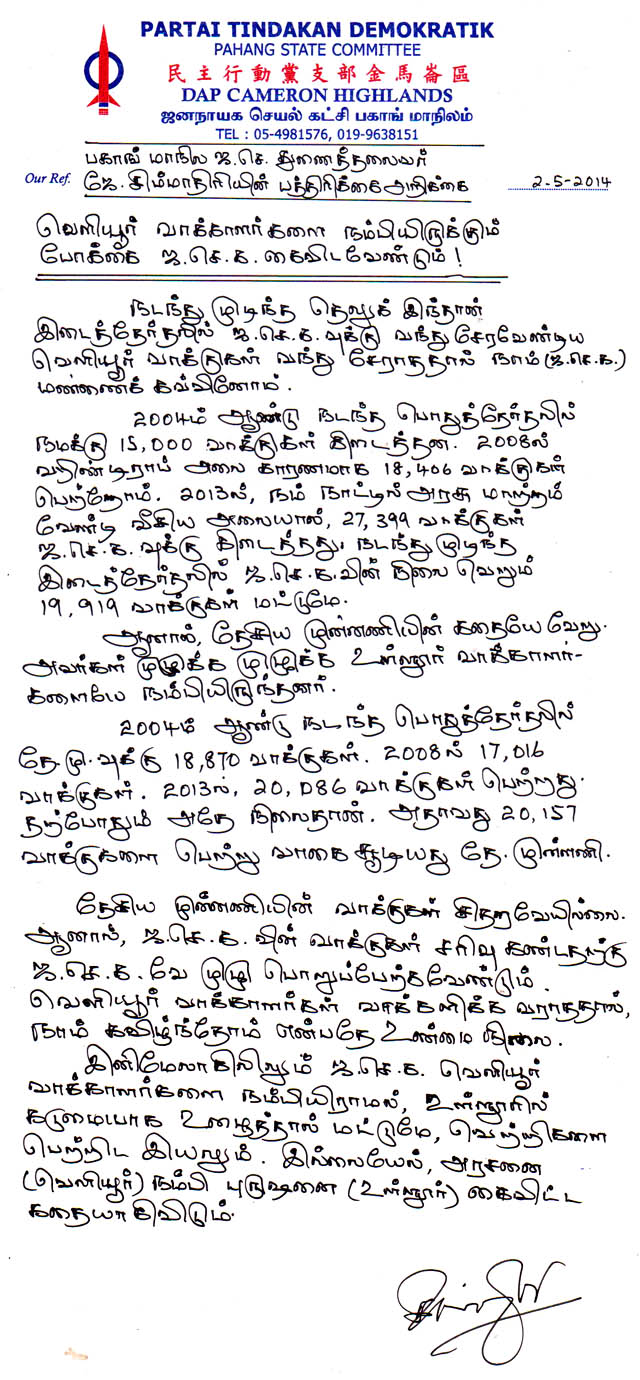 PARTAI TINDAKAN DEMOKRATIK
PAHANG STATE COMMITTEE
民主行動黨支部金馬崙區
DAP CAMERON HIGHLANDS
ஜனநாயக செயல் கட்சி பகாங் மாநிலம்
TEL : 05-4981576, 019-9638151
பகாங் மாநில ஜ.செ. துணைத்தலைவர்
Our Ref. ஜே.சிம்மாதிரியின் பத்திரிக்கை அறிக்கை 2-5-2014
வெளியூர் வாக்காளர்களை நம்பியிருக்கும்
போக்கை ஜ.செ.க. கைவிட வேண்டும் !
நடந்து முடிந்த தெலுக் இந்தான்
இடைத்தேர்தலில் ஜ.செ.க.வுக்கு வந்து சேரவேண்டிய
வெளியூர் வாக்குகள் வந்து சேராததால் நாம் (ஜ.செ.க.)
மண்ணைக் கவ்வினோம்.
2004ம் ஆண்டு நடந்த பொதுத்தேர்தலில்
நமக்கு 15,000 வாக்குகள் கிடைத்தன. 2008ல்
அலை காரணமாக 18,406 வாக்குகள்
பெற்றோம். 2013ல், நம் நாட்டில் அரசு மாற்றம்
வேண்டி வீசிய அலையால், 27,399 வாக்குகள்
ஜ.செ.க.வுக்கு கிடைத்தது. நடந்து முடிந்த
இடைத்தேர்தலில் ஜ.செ.க.வின் நிலை வெறும்
19,919 வாக்குகள் மட்டுமே.
ஆனால், தேசிய முன்னணியின் கதையே வேறு.
அவர்கள் முழுக்க முழுக்க உள்ளூர் வாக்காளர்-
களையே நம்பியிருந்தனர்.
2004ம் ஆண்டு நடந்த பொதுத்தேர்தலில்
தே.மு.வுக்கு 18,870 வாக்குகள். 2008ல் 17,016
வாக்குகள். 2013ல், 20,086 வாக்குகள் பெற்றது.
தற்போதும் அதே நிலைதான். அதாவது 20,157
வாக்குகளை பெற்று வாகை சூடியது தே. முன்னணி.
தேசிய முன்னணியின் வாக்குகள் சிதறவேயில்லை.
ஆனால், ஜ.செ.க.வின் வாக்குகள் சரிவு கண்டதற்கு
ஜ.செ.க.வே முழு பொறுப்பேற்கவேண்டும்.
வெளியூர் வாக்காளர்கள் வாக்களிக்க வராததால்,
நாம் கவிழ்ந்தோம் என்பதே உண்மை நிலை.
இனிமேலாகிலும் ஜ.செ.க. வெளியூர்
வாக்காளர்களை நம்பியிராமல், உள்ளூரில்
கடுமையாக உழைத்தால் மட்டுமே, வெற்றிகளை
பெற்றிட இயலும். இல்லையேல், அரசனை
(வெளியூர்) நம்பி புருஷனை (உள்ளூர்) கைவிட்ட
கதையாகிவிடும்.